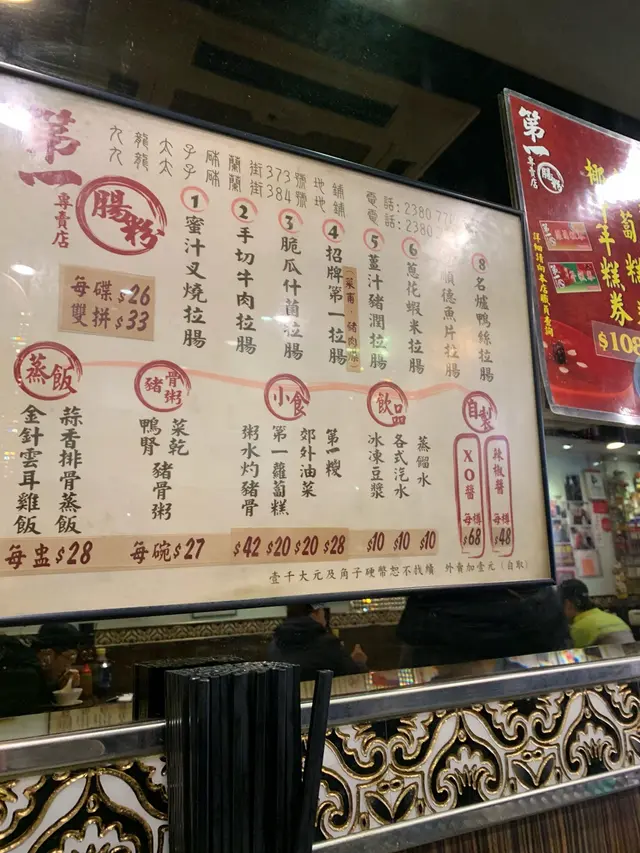 第一
腸粉
專賣店
九龍太子砵蘭街373號地鋪
九龍太子砵蘭街384號地鋪
電話:2380 77
電話:2380
每碟$26
雙拼$33
1 蜜汁叉燒拉腸
2 手切牛肉拉腸
3 脆瓜什菌拉腸
4 招牌第一拉腸
(菜甫,豬肉鬆)
5 薑汁豬潤拉腸
6 蔥花蝦米拉腸
順德魚片拉腸
8 名爐鴨絲拉腸
蒸飯
金針雲耳雞飯
蒜香排骨蒸飯
每盅$28
豬骨粥
鴨腎
菜乾
豬骨粥
每碗$27
小食
粥水灼豬骨
$42
第一蘿蔔糕
$20
郊外油菜
$20
第一糭
$28
飲品
冰凍豆漿
$10
各式汽水
$10
蒸餾水
$10
自製
XO醬
每樽
$68
辣椒醬
每樽
$48
壹千大元及角子硬幣恕不找續
外賣加壹元(自取)
第一
腸粉
專賣店
詳細請向本店職員查詢
糕券
$108